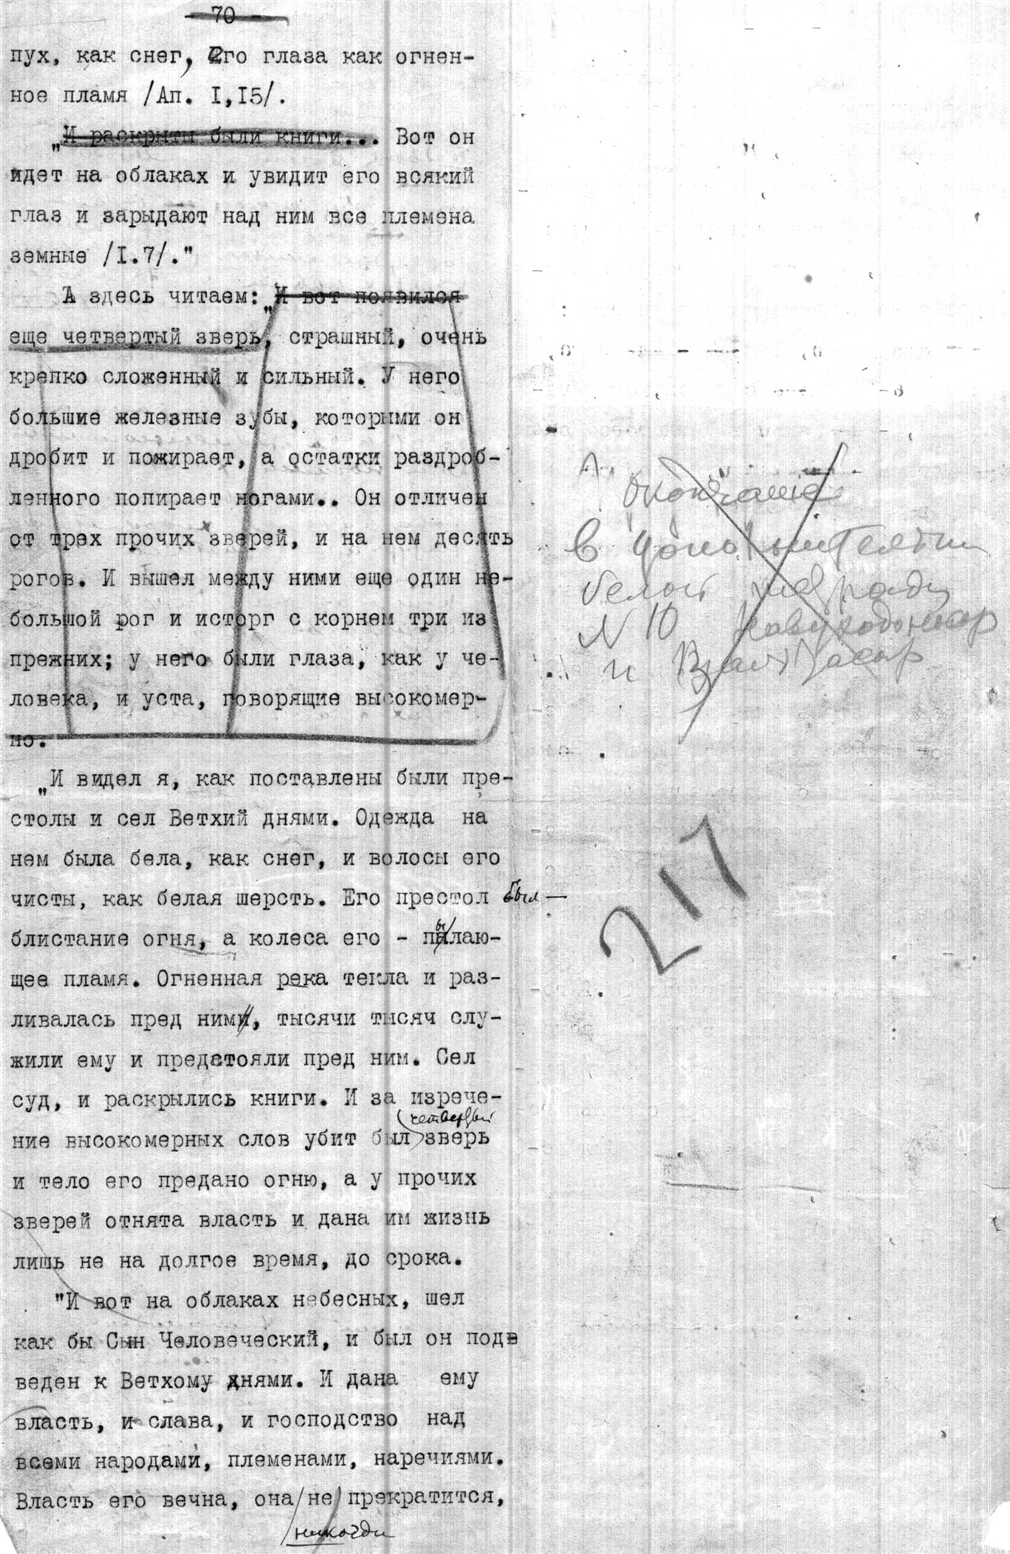 70
пух, как снег, Его глаза как огнен-
ное пламя /Ап. I,I5/.
„И раскрыты были книги... Вот он
идет на облаках и увидит его всякий
глаз и зарыдают над ним все племена
земные /I.7/."
А здесь читаем: „И вот появился
еще четвертый зверь, страшный, очень
крепко сложенный и сильный. У него
большие железные зубы, которыми он
дробит и пожирает, а остатки раздроб-
ленного попирает ногами.. Он отличен
от трех прочих зверей, и на нем десять
рогов. И вышел между ними еще один не-
большой рог и исторг с корнем три из
прежних; у него были глаза, как у че-
ловека, и уста, говорящие высокомер-
но.
„И видел я, как поставлены были пре-
столы и сел Ветхий днями. Одежда на
нем была бела, как снег, и волосы его
чисты, как белая шерсть. Его престол был —
блистание огня, а колеса его - пылаю-
щее пламя. Огненная река текла и раз-
ливалась пред ним, тысячи тысяч слу-
жили ему и предстояли пред ним. Сел
суд, и раскрылись книги. И за изрече-
четвертый
ние высокомерных слов убит был зверь
и тело его предано огню, а у прочих
зверей отнята власть и дана им жизнь
лишь не на долгое время, до срока.
"И вот на облаках небесных, шел
как бы Сын Человеческий, и был он подв
веден к Ветхому днями. И дана ему
власть, и слава, и господство над
всеми народами, племенами, наречиями.
Власть его вечна, она не прекратится,
никогда
окончание
в дополнительной
белой тетради
N 10 Навуходоносор
и Валтасар
217